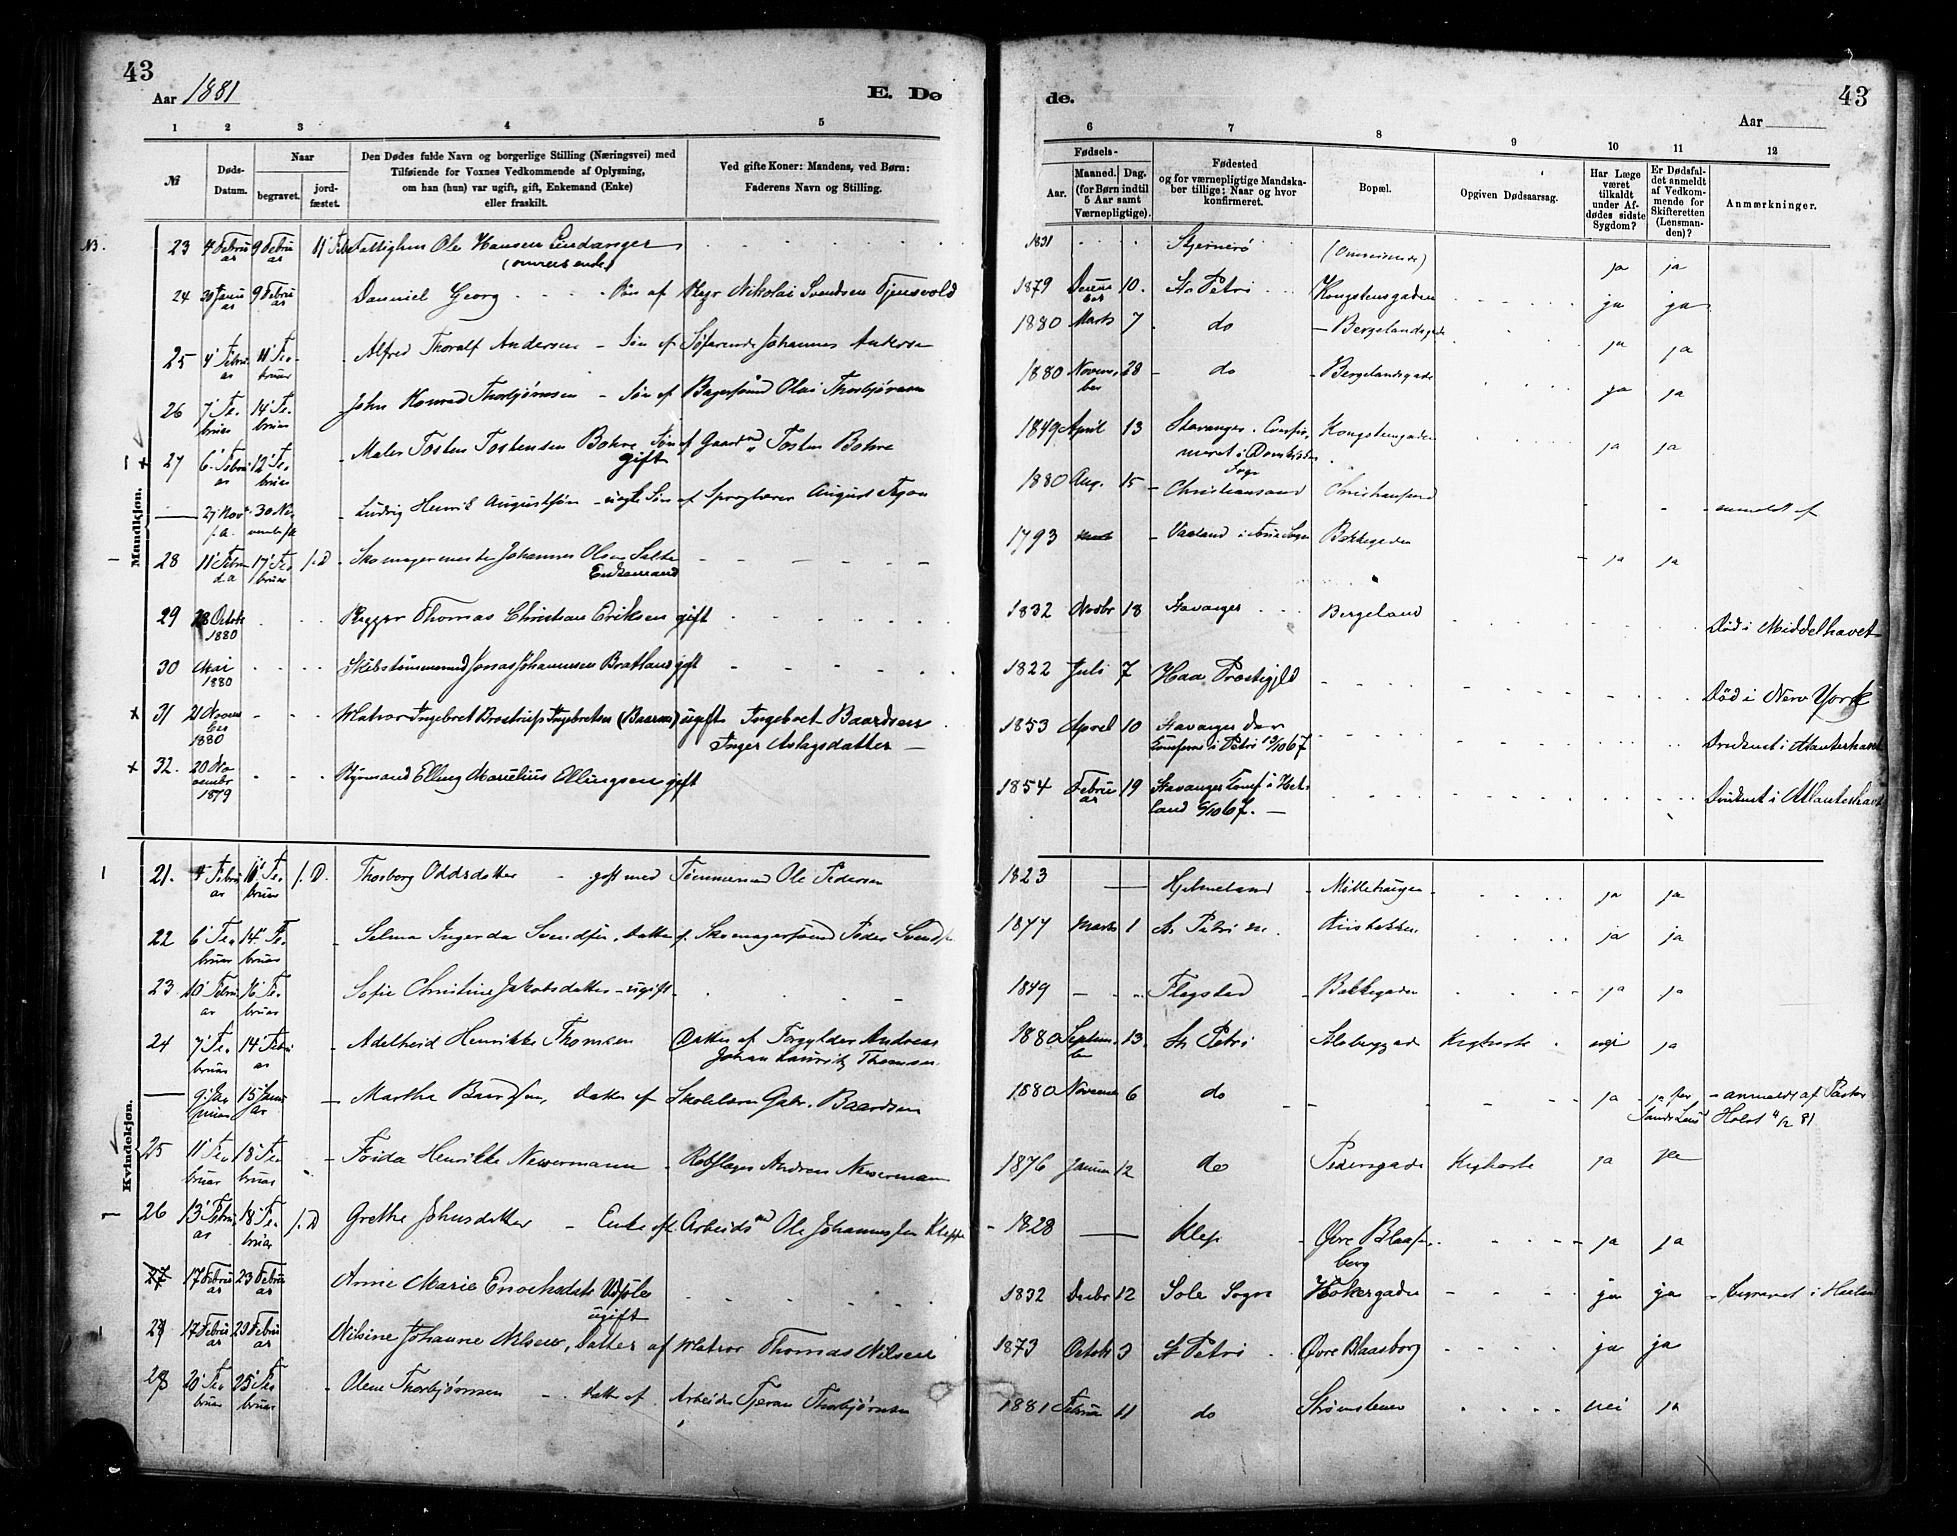 43
Aar 1881
E. Dø
de.
43
Aar
1 2 3 4 5
6 7 8 9 10 11 12
№
Døds-Datum.
Naar
begravet.
jord-fæstet.
Den Dødes fulde Navn og borgerlige Stilling (Næringsvei) med
Tilføiende for Voxnes Vedkommende af Oplysning,
om han (hun) var ugift, gift, Enkemand (Enke)
eller fraskilt.
Ved gifte Koner: Mandens, ved Børn:
Faderens Navn og Stilling.
Fødsels-
Aar.
Maaned. Dag.
(for Børn indtil
5 Aar samt
Værnepligtige).
Fødested
og for værnepligtige Mandska-
ber tillige: Naar og hvor
konfirmeret.
Bopæl.
Opgiven Dødsaarsag.
Har Læge
været
tilkaldt
under Af-
dødes sidste
Sygdom?
Er Dødsfal-
det anmeldt
af Vedkom-
mende for
Skifteretten
(Lensman-
den)?
Anmærkninger.
Mandkjøn.
23 4 Februar 9 Februar Ole Hansen (omreisende) 1831 Stjernerö (Omreisende) ja ja
24 30 Januar 9 Februar Danniel Georg Søn af Nikolai Svendsen 1879 December 10 St Petri Kongstensgaden ja ja
25 4 Februar 11 Februar Alfred Thoralf Andersen Søn af Søfarende Johannes Andersen 1880 Marts 7 do Bergelandsgade ja ja
26 7 Februar 14 Februar John Konrad Thorbjørnsen Søn af Olai Thorbjørnsen 1880 November 28 do Bergelandsgade ja ja
27 6 Februar 12 Februar Maler Tosten Tostensen Bohre gift Søn af Gaardmd Tosten Bohre 1849 April 13 Stavanger. Confirmeret i Domkirkens Sogn Kongstensgaden ja ja
27 Nov f.a. 30 November f.a. Ludvig Henrik Augustsøn uægte Søn af August 1880 Aug. 15 Christiansand Christiansand anmeldt af
28 11 Februar 17 Februar f.D Skomagermester Johannes Olsen Enkemand 1793 Vaaland Bakkegaden ja ja
29 28 October 1880 Thomas Christian Eriksen gift 1832 Novbr 18 Stavanger Bergeland Død i Middelhavet
30 Mai 1880 Skibstømmermand Jonas Johannesen Bratland gift 1822 Juli 7 Haa Præstegjeld Død i New York
31 21 November 1880 Matros Ingebret Brostrup Ingebretsen (Baarsen) ugift Ingebret Baardsen
Inger Aslagsdatter 1853 April 10 Stavanger Dom Petri 13/10 67 Druknet i Atlanterhavet
32. 20 November 1879 Styrmand Elling Marelius Ellingsen gift 1854 Februar 19 Stavanger Conf i Hetland 6/10 67. Druknet i Atlanterhavet
Kvindekjøn.
21. 4 Februar Februar f.D. Thorborg Oddsdatter gift med Tømmermd Ole Pedersen 1823 Hjelmeland Møllehaugen ja ja
22 6 Februar 14 Februar Selma Ingerda Svendsen, Datter af Skomagersvend Peder Svendsen 1877 Marts 1 St. Petri ja ja
23 10 Februar 16 Februar Sofie Christine Jakobsdatter ugift 1849 Flegstad Bakkegaden ja ja
24 7 Februar 14 Februar Adelheid Henrikke Thomsen Datter af Forgylder Andreas
Johan Lauritz Thomsen 1880 September 13. St Petri Kighoste nei ja
9 Januar 15 Januar Martha Baardsen, Datter af Gabr. Baardsen 1880 November 6 do ja anmeldt af Pastor
Holst 4/2 81
25 11 Februar 18 Februar Frida Henrikke Newermann Rebslager Andreas Newermann 1876 Januar 12 do Pedersgade Kighoste ja ja
26 13 Februar 18 Februar f.D Grethe Johnsdatter Enke af Arbeidsmd Ole Johannessen Klepp 1828 Klep Øvre Blaasenberg ja ja
27 17 Februar 23 Februar Anne Marie Enochsdatr ugift 1832 Decbr 12 Sole Sogn Høkergaden ja ja begravet i Haaland
28 17 Februar 23 Februar Nilsine Johanne Nilsen, Datter af Matros Thomas Nilsen 1873 October 3 St Petri Øvre Blaasborg ja ja
28 20 Februar 25 Februar Olene Thorbjørnsen Datter af Arbeider Tjeran Thorbjørnsen 1881 Februar 11 do Strømstenen nei ja